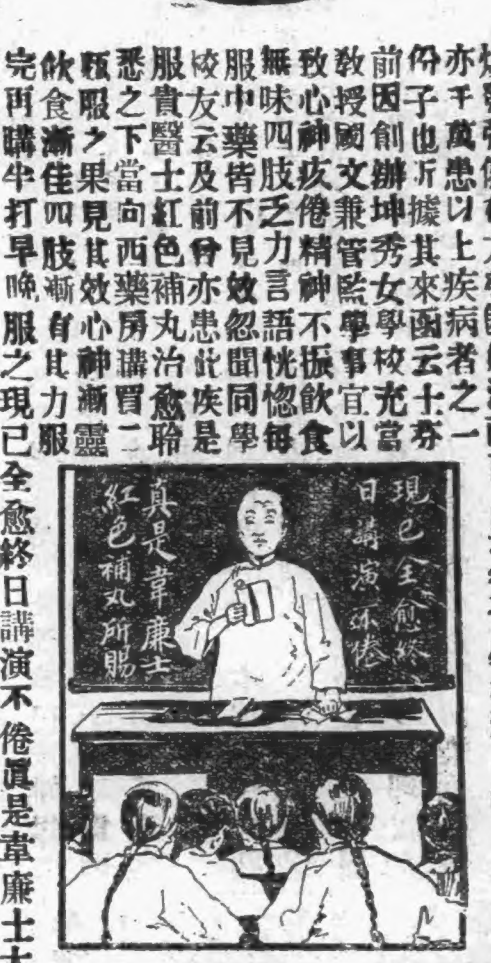 亦千萬患以上疾病者之一
份子也近據其來函云士芬
前因創辦坤秀女學校充當
敎授國文兼管監學事宜以
致心神疚倦精神不振飲食
無味四肢乏力言語恍惚每
服中藥皆不見效忽聞同學
校友云及前曾亦患此疾是
服貴醫士紅色補丸治愈聆
悉之下當向西藥房購買二
瓶服之果見其效心神漸靈
飲食漸佳四肢漸有其力服
完再購半打早晚服之現已全愈終日講演不倦眞是韋廉士大
現已全愈終
日講演不倦
真是韋廉士
紅色補丸所賜